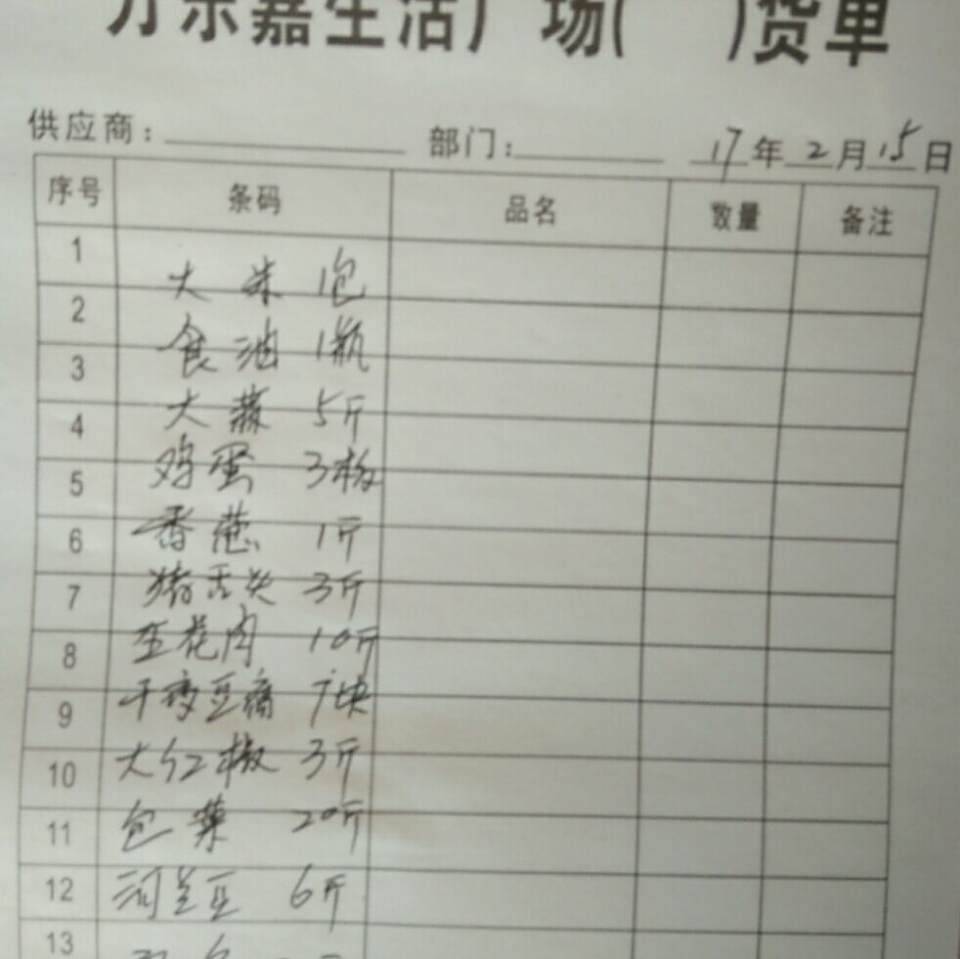 万乐嘉生活广场( )货单
供应商: 部门: 17年2月15日
序号 条码 品名 数量 备注
1
大米 1包
2
食油 1瓶
3
大蒜 5斤
4
鸡蛋 3板
5
香葱 1斤
6
猪舌头 3斤
7
五花肉 10斤
8
干变豆腐 7块
9
大红椒 3斤
10
包菜 20斤
11
河兰豆 6斤
12
13